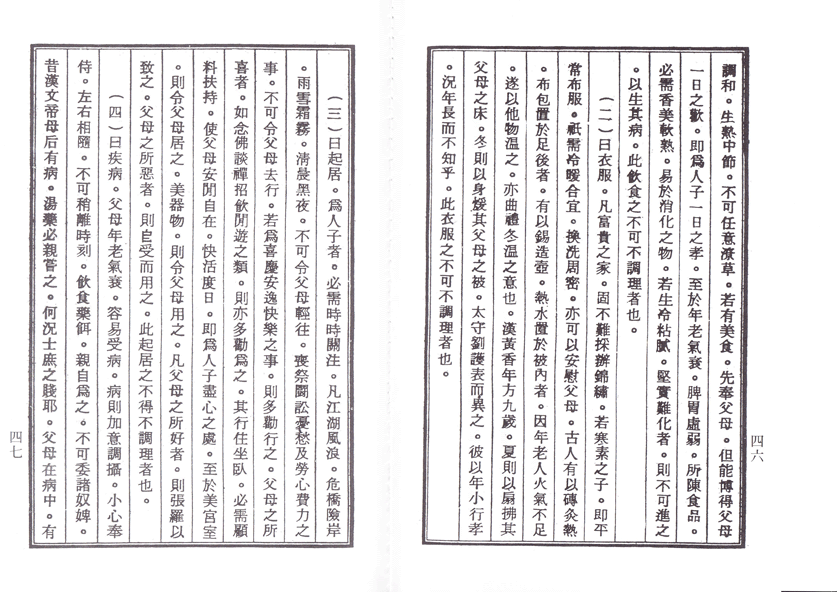 調和。生熟中節。不可任意潦草。若有美食。先奉父母。但能博得父母
一日之歡。即爲人子一日之孝。至於年老氣衰。脾胃虛弱。所陳食品。
必需香美軟熟。易於消化之物。若生冷粘膩。堅實難化者。則不可進之
。以生其病。此飲食之不可不調理者也。
（二）曰衣服。凡富貴之家。固不難採辦錦繡。若寒素之子。即平
常布服。祇需冷暖合宜。換洗周密。亦可以安慰父母。古人有以磚灸熱
。布包置於足後者。有以錫造壺。熱水置於被內者。因年老人火氣不足
。遂以他物溫之。亦曲禮冬溫之意也。漢黃香年方九歲。夏則以扇拂其
父母之床。冬則以身煖其父母之被。太守劉護表而異之。彼以年小行孝
。況年長而不知乎。此衣服之不可不調理者也。
四六
（三）曰起居。爲人子者。必需時時關注。凡江湖風浪。危橋險岸
。雨雪霜霧。清晨黑夜。不可令父母輕往。喪祭鬪訟憂愁及勞心費力之
事。不可令父母去行。若爲喜慶安逸快樂之事。則多勸行之。父母之所
喜者。如念佛談禪招飲閒遊之類。則亦多勸爲之。其行住坐臥。必需顧
料扶持。使父母安閒自在。快活度日。即爲人子盡心之處。至於美宮室
。則令父母居之。美器物。則令父母用之。凡父母之所好者。則張羅以
致之。父母之所惡者。則自受而用之。此起居之不得不調理者也。
（四）曰疾病。父母年老氣衰。容易受病。病則加意調攝。小心奉
侍。左右相隨。不可稍離時刻。飲食藥餌。親自爲之。不可委諸奴婢。
昔漢文帝母后有病。湯藥必親嘗之。何況士庶之賤耶。父母在病中。有
四七